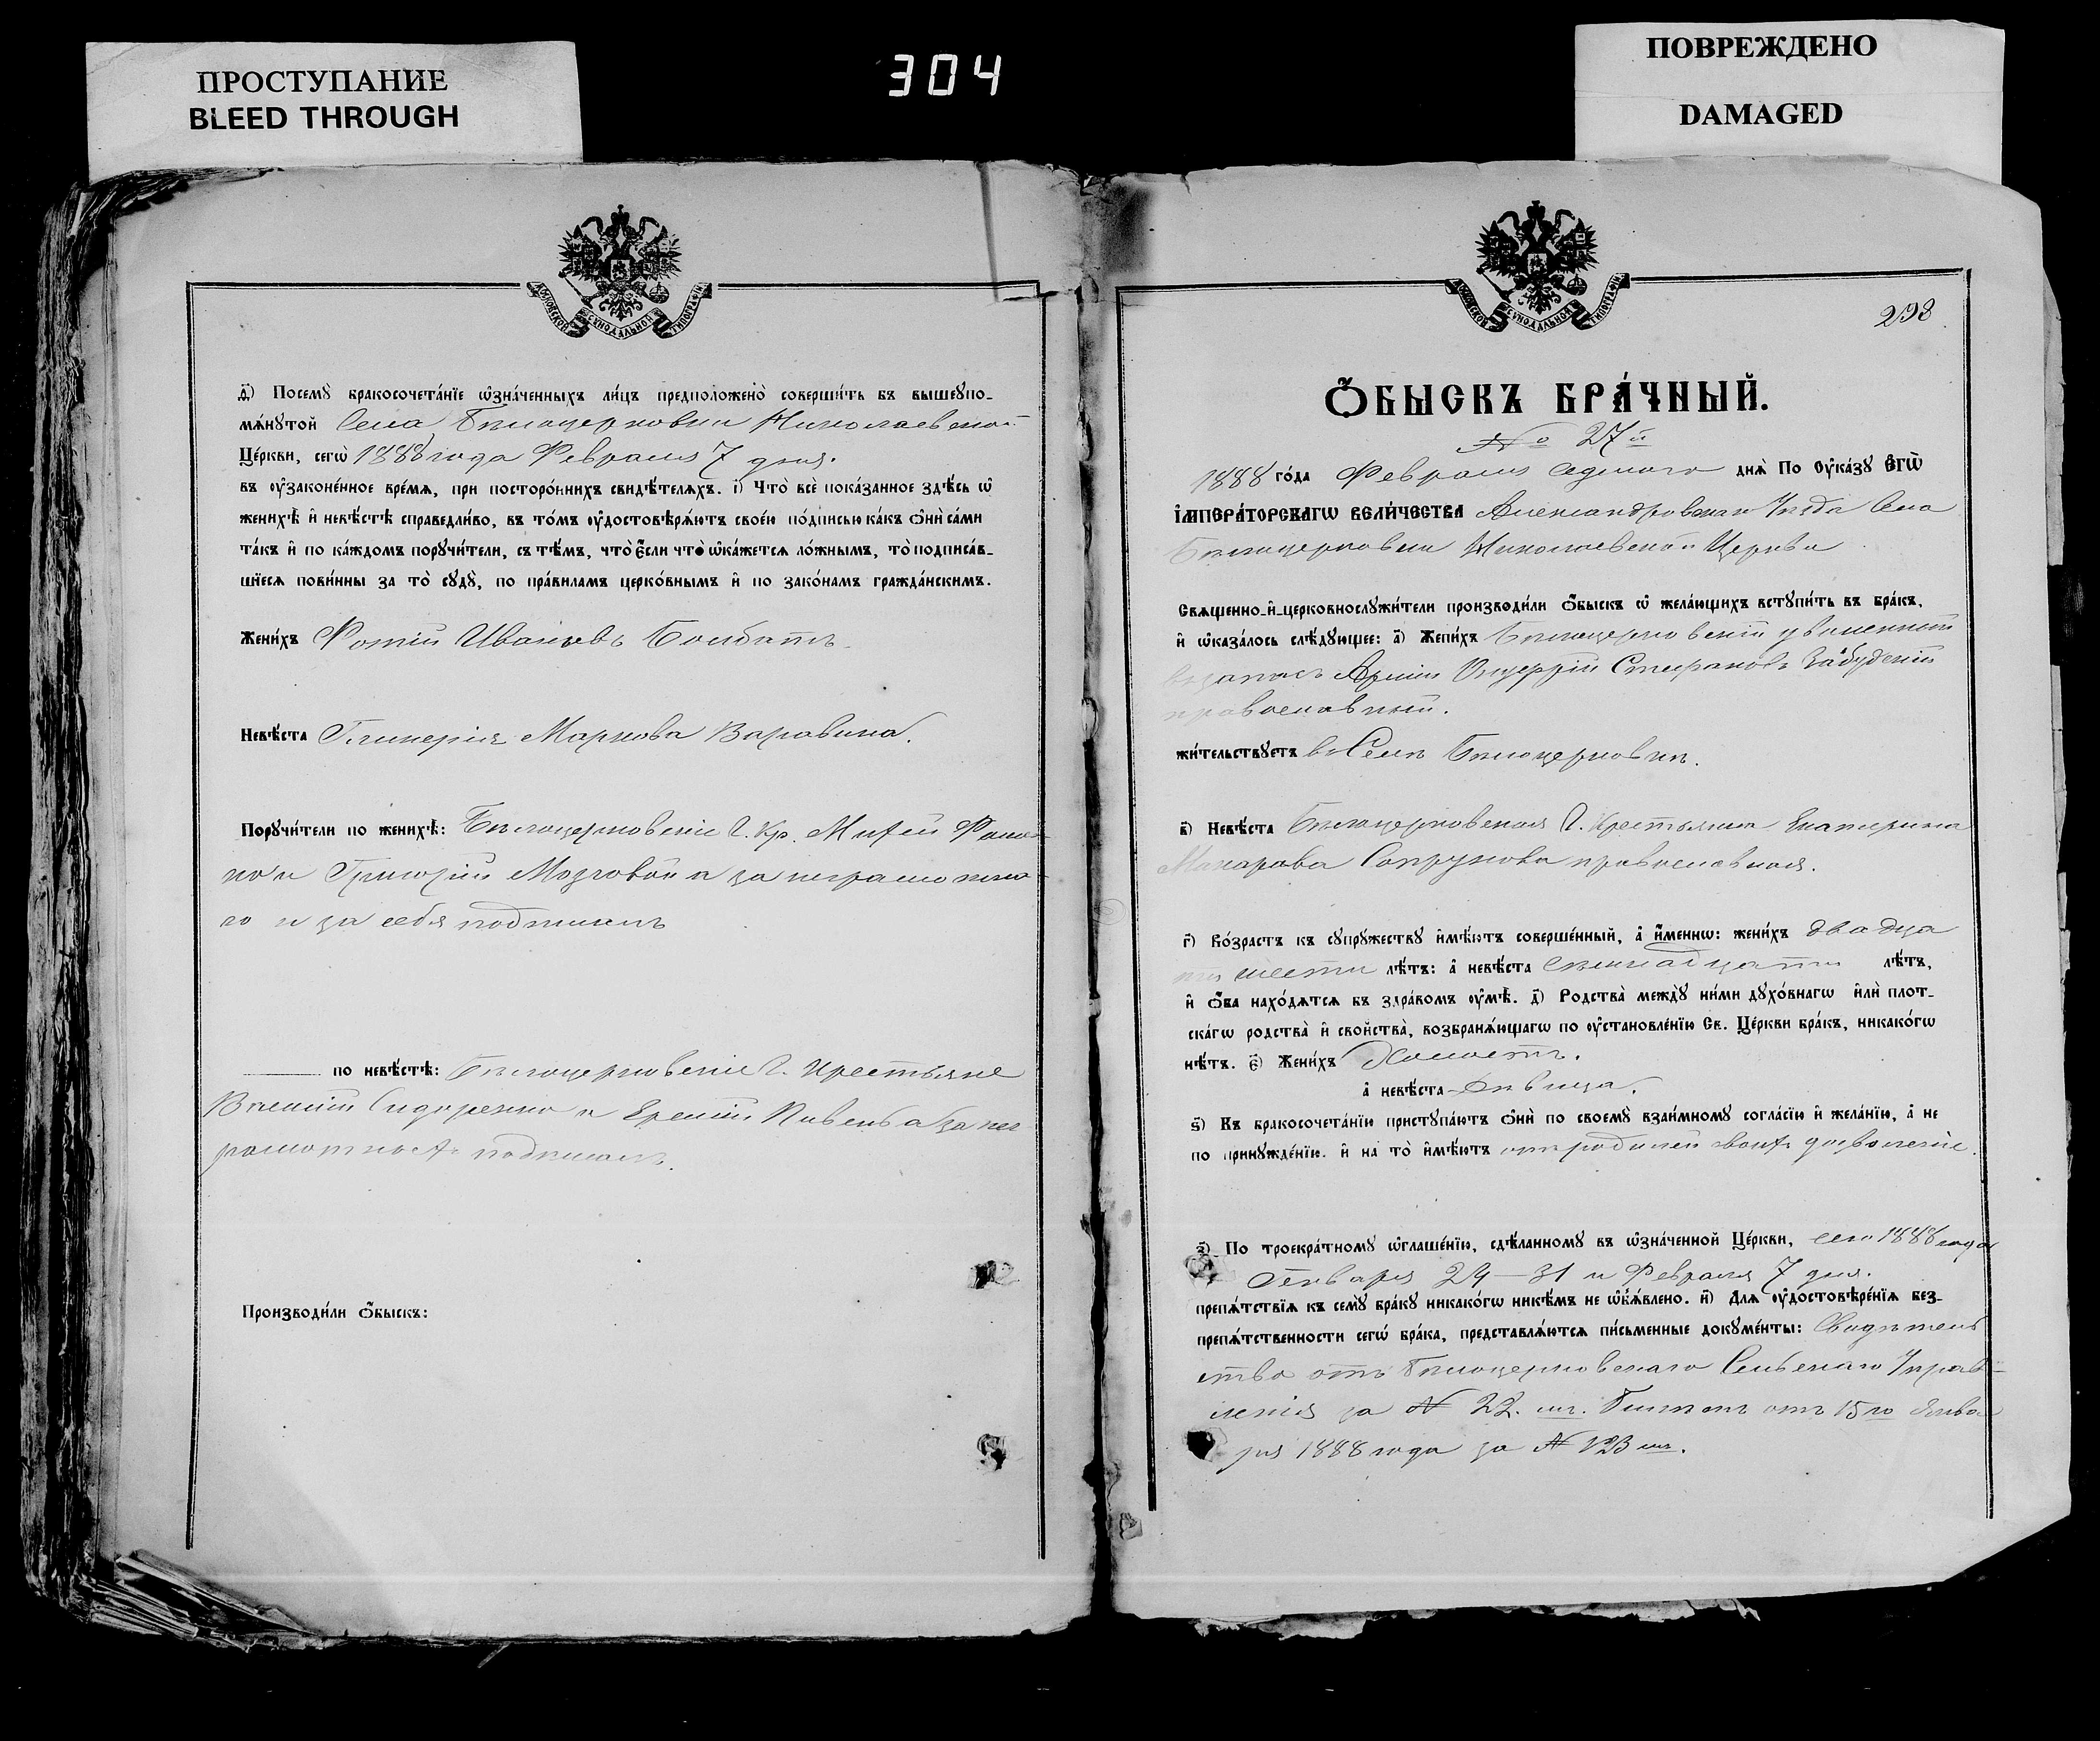 ПРОСТУПАНИЕ
BLEED THROUGH
304
ПОВРЕЖДЕНО
DAMAGED
МОСКОВСКОЙ СѴНОДАЛЬНОЙ ТИПОГРАФІИ
д҃) Посемꙋ̀ бракосочета́нїе ѡ҆зна́ченныхъ ли́цъ предположено̀ соверши́ть въ вышеꙋпо-
мѧ́нꙋтой Села Бѣлоцерковки Николаевской
Це́ркви, сегѡ̀ 1888 года Февраля 7 дня.
въ ᲂу҆законе́нное вре́мѧ, при посторо́ннихъ свидѣ́телѧхъ. і҃) Что̀ всѐ пока́занное здѣ́сь ѡ҆
женихѣ̀ и҆ невѣ́стѣ справедли́во, въ то́мъ ᲂу҆достовѣрѧ́ютъ свое́ю по́дписью ка́къ ѻ҆нѝ са́ми
та́къ и҆ по ка́ждомъ порꙋчи́тели, съ тѣ́мъ, что̀ є҆́сли что̀ ѡ҆ка́жетсѧ ло́жнымъ, то̀ подписа́в-
шїесѧ пови́нны за то̀ сꙋдꙋ̀, по пра́виламъ церко́внымъ и҆ по зако́намъ гражда́нскимъ.
Жени́хъ Фотій Ивановъ Болбатъ
Невѣ́ста Гликерія Маркова Варавина.
Порꙋчи́тели по женихѣ̀: Бѣлоцерковскіе Г. Кр.
но и Григорій Мозговой а за неграмотна-
го и за себя подписалъ
по невѣ́стѣ: Бѣлоцерковскіе Г. Крестьяне
Василій Сидоренко и Еремій Пивень а за нег
рамотныхъ подписалъ.
Производи́ли Ѻ҆́быскъ:
МОСКОВСКОЙ СѴНОДАЛЬНОЙ ТИПОГРАФІИ
298
Ѻ҆́БЫСКЪ БРА́ЧНЫЙ.
№ 27й
1888 го́да Февраля седмого днѧ̀ По Оу҆ка́зꙋ Є҆гѡ̀
І҆мпера́торскагѡ Вели́чества Александровскаго Уѣзда Села
Бѣлоцерковки Николаевской Церкви
Свѧщенно-и҆-церковнослꙋжи́тели производи́ли Ѻ҆́быскъ ѡ҆ жела́ющихъ встꙋпи́ть въ бра́къ,
и҆ ѡ҆каза́лось слѣ́дꙋющее: а҃) Жени́хъ Бѣлоцерковскій уволенный
въ запасъ Арміи Стефановъ
православный.
жи́тельствꙋетъ въ Селѣ Бѣлоцерковкѣ.
в҃) Невѣ́ста Бѣлоцерковская Г. Крестьянка Екатерина
Макарова Супрунова православная.
г҃) Во́зрастъ къ сꙋпрꙋ́жествꙋ и҆мѣ́ютъ соверше́нный, а҆ и҆́меннѡ: жени́хъ двадца
ти шести лѣ́тъ: а҆ невѣ́ста семнадцати лѣ́тъ,
и҆ ѻ҆́ба нахо́дѧтсѧ въ здра́вомъ ᲂу҆мѣ̀. д҃) Родства̀ междꙋ̀ ни́ми дꙋхо́внагѡ и҆лѝ плот-
ска́гѡ родства̀ и҆ свойства̀, возбранѧ́ющагѡ по ᲂу҆становле́нїю Св. Це́ркви бра́къ, никако́гѡ
нѣ́тъ. є҃) Жени́хъ Холостъ.
а҆ невѣ́ста Дѣвица.
ѕ҃) Къ бракосочета́нїю пристꙋпа́ютъ ѻ҆нѝ по своемꙋ̀ взаи́мномꙋ согла́сїю и҆ жела́нїю, а҆ не
по принꙋжде́нїю. и҆ на то̀ и҆мѣ́ютъ отъ родителей своихъ дозволеніе.
з҃) По троекра́тномꙋ ѡ҆глаше́нїю, сдѣ́ланномꙋ въ ѡ҆зна́ченной Це́ркви, сего 1888 года
Генваря 24–31 и Февраля 7 дня.
препѧ́тствїѧ къ семꙋ̀ бра́кꙋ никако́гѡ никѣ́мъ не ѡ҆б̾ѧ́влено. и҃) Длѧ ᲂу҆достовѣре́нїѧ без-
препѧ́тственности сегѡ̀ бра́ка, представлѧ́ютсѧ пи́сьменные докꙋме́нты: Свидѣтель
ство отъ Бѣлоцерковскаго Сельскаго Управ-
ленія за № 22. Билетъ отъ 15го Янва
ря 1888 года за №